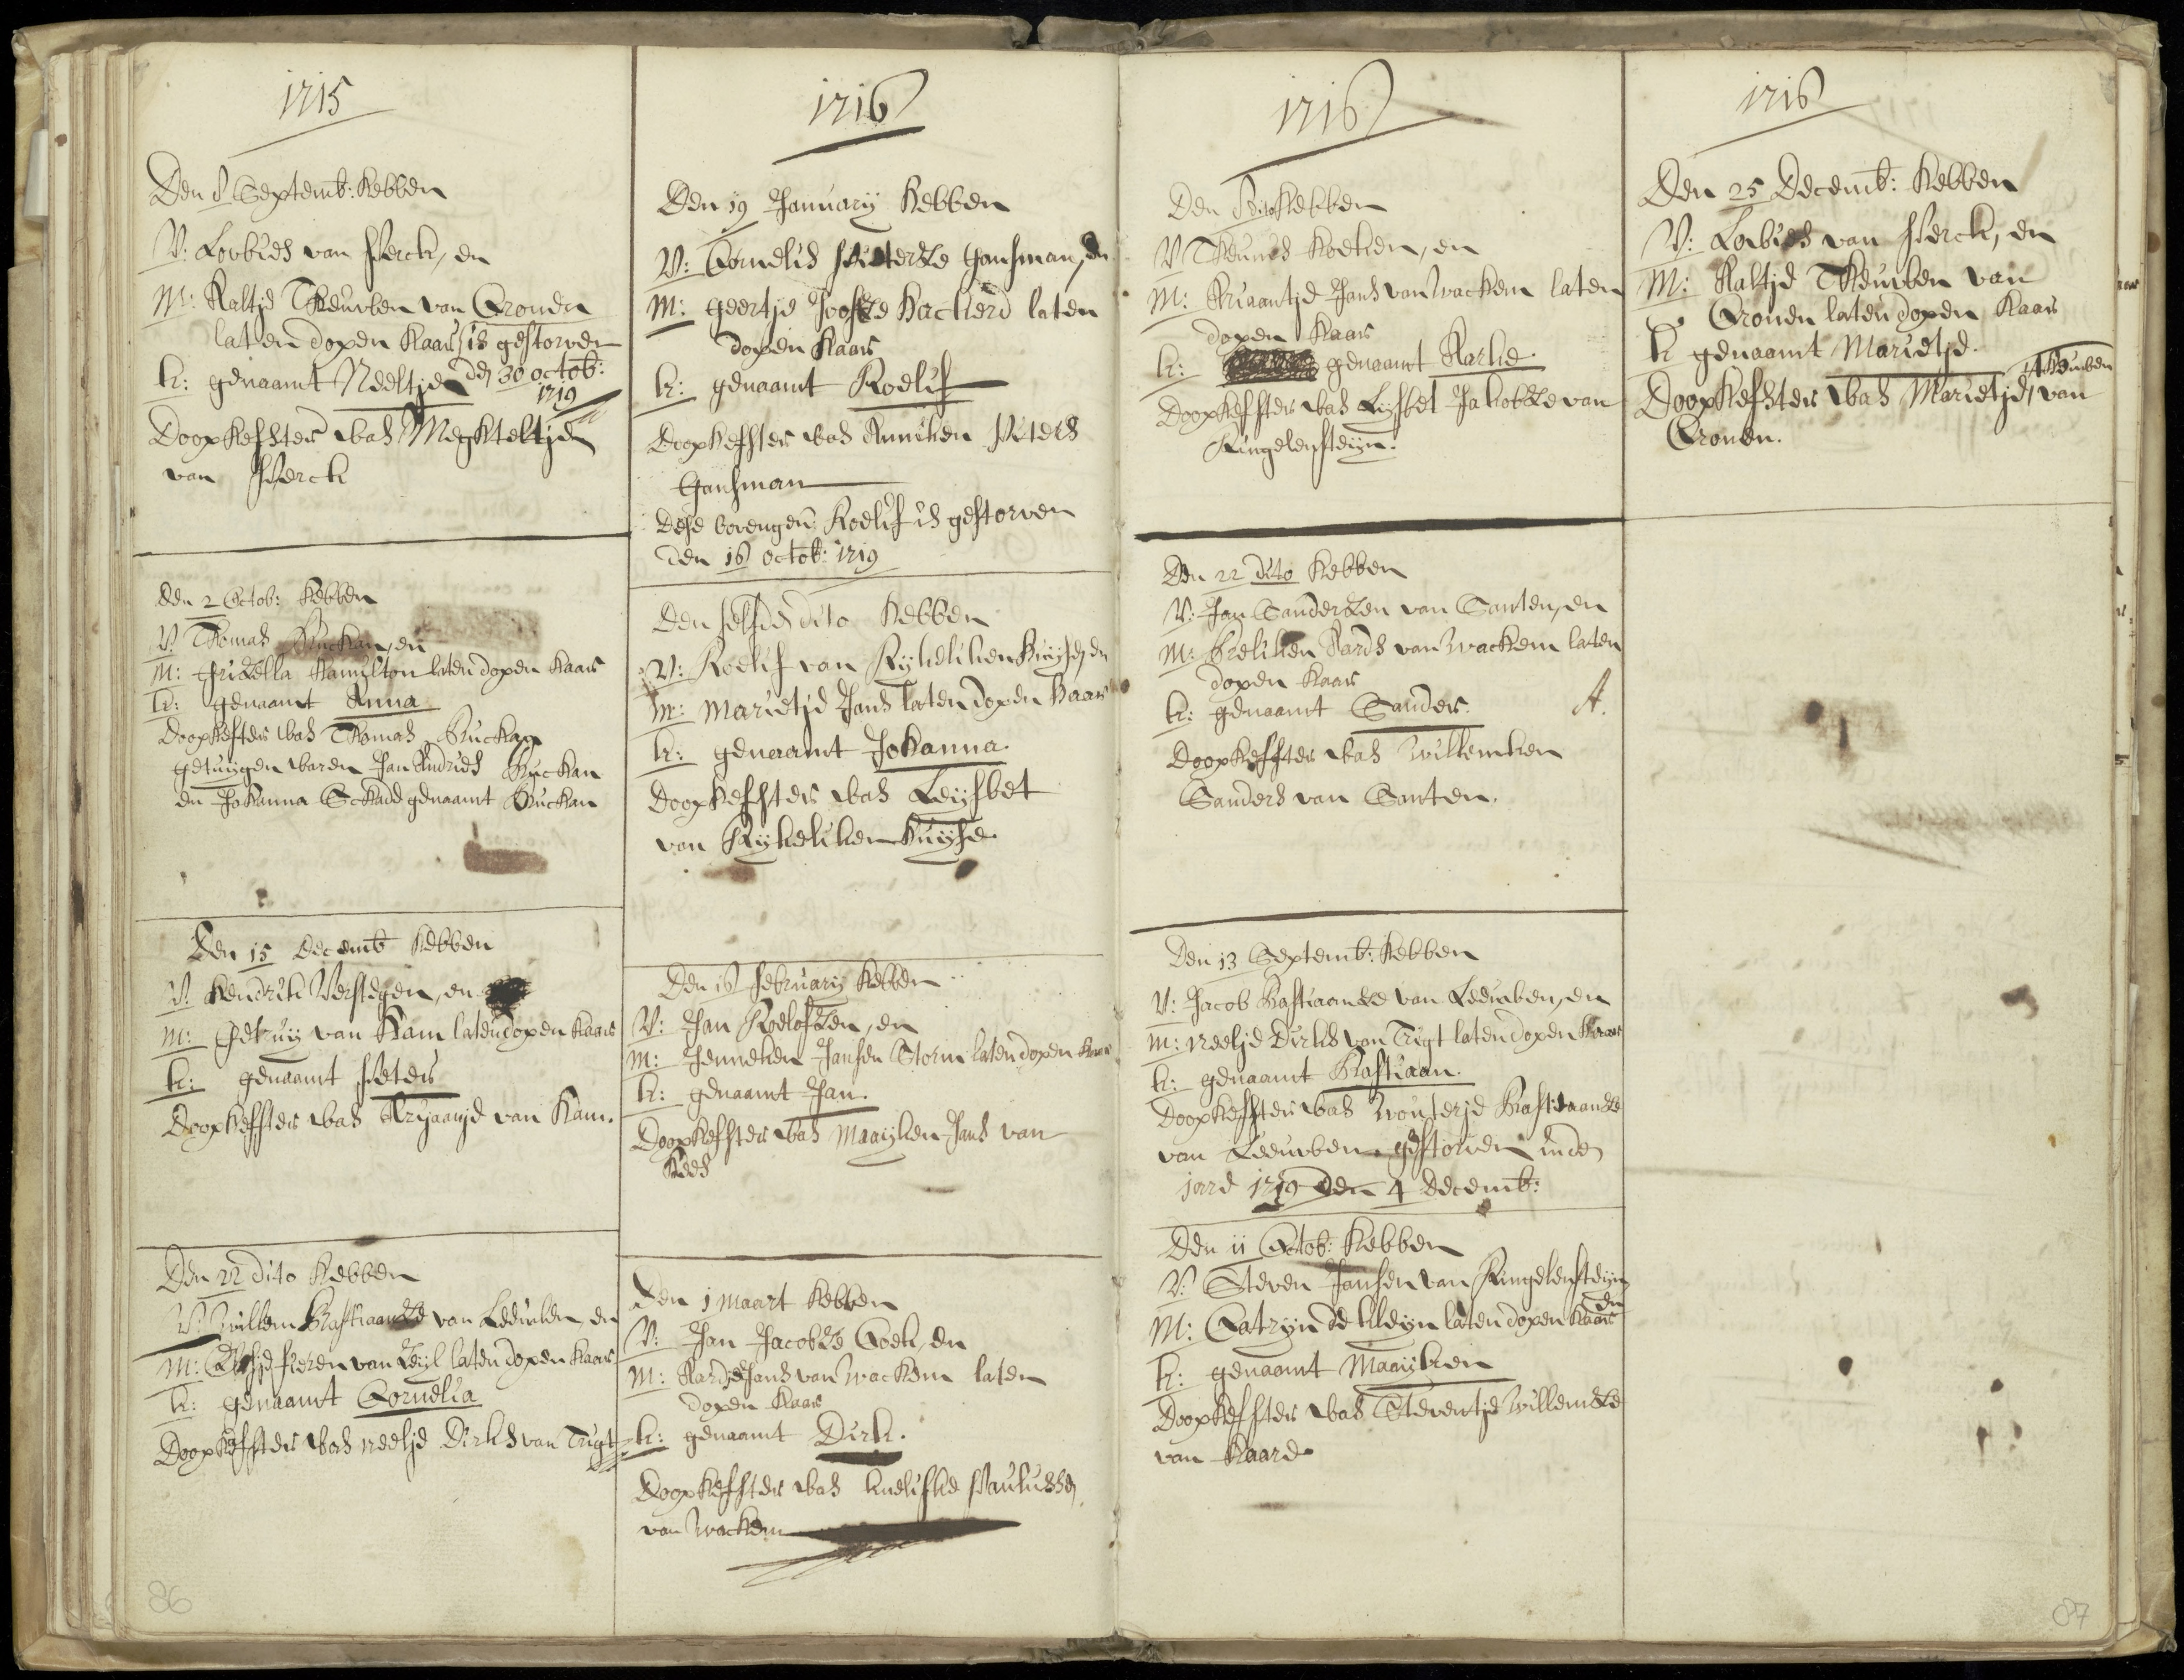 1715
Den 8 Septemb: hebben
V: Louwies van Herck, en
M: Aaltje Theuwben van Cronen
laten dopen haar is gestorven
k: genaamt Neeltjen den 30 octob:
1719
Doophefster was Meghteltjen
van Herck
den 2 Octob: hebben
V: Thomas Buchan, en
M: Grizella Hamilton laten dopen haar
k: genaamt Anna
Doophefster was Thomas Buchan
getuijgen waren Jan Andries Buchan
en Johanna genaamt Buchan
Den 15 Decemb hebben
V: Hendrik Verstegen, en
M: van Ham laten dopen haar
k: genaamt Peter
Doophefster was Aryaantje van Ham.
Den 22 dito hebben
V: Willem Bastiaanze van Leeuwen, en
M: Pieren van Zeyl laten dopen haar
k: genaamt Cornelia
Doophefster was neeltje Dirks van Trigt
86
1716
Den 19 January hebben
V: Cornelis Pieterze Hansman, en
M: geertje Jooste Hackerd laten
dopen haar
k: genaamt Roelif
Doophefster was Anneken Peters
Hansman
dese bovengen: Roelif is gestorven
den 16 octob: 1719
Den selfden dito hebben
V: Roelif van Rykelikenhuyse, en
M: Marietje Jans laten dopen haar
k: genaamt Johanna.
Doophefster was Leysbet
van Rykelikenhuyse
Den 16 february hebben
V: Jan Roelofzen, en
M: Jenneken Jansen Storm laten dopen haar
k: genaamt Jan.
Doophefster was Maayken Jans van
Hees
Den 1 maart hebben
V: Jan Jacobze Coek, en
M: Jans van Wackem laten
dopen haar
k: genaamt Dirk.
Doophefster was kneliske Paulusse
van Wackem
1716
Den dito hebben
V Theunis Koeken, en
M: Ariaantje Jans van Wackem laten
dopen haar
k: genaamt Aarke.
Doophefster was Lysbet Jakobze van
Ringelensteyn.
Den 22 dito hebben
V: Jan Sanderzen van Santen, en
M: Aards van Wackem laten
dopen haar
k: genaamt Sander. A.
Doophefster was Willemken
Sanders van Santen.
Den 13 Septemb: hebben
V: Jacob Bastiaanze van Leeuwen, en
M: Neeltje Dirks van Trigt laten dopen haar
k: genaamt Bastiaan.
Doophefster was Wouterje Bastiaanze
van Leeuwen. gestorven inde
jare 1719 den 4 decemb:
Den 11 Octob: hebben
V: Steven Jansen van Ringelensteyn
en
M: Catryn de kleyn laten dopen haar
k: genaamt Maayken
Doophefster was Steventje Willemze
van Haard
1716
Den 25 Decemb: hebben
V: Louwies van Herck, en
M: Aaltje Theuwben van
Cronen laten dopen haar
k genaamt Marietje.
Theuwben
Doophefster was Marietje van
Cronen.
87